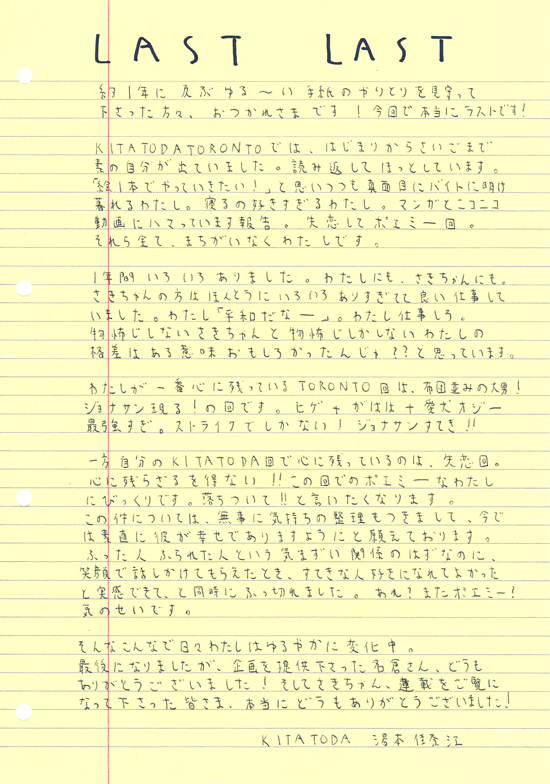 LAST LAST
約1年に及ぶゆる〜い手紙のやりとりを見守って
下さった方々、おつかれさまです！今回で本当にラストです！
KITATODATORONTOでは、はじまりからさいごまで
素の自分が出ていました。読み返してほっとしています。
「絵1本でやっていきたい！」と思いつつも真面目にバイトに明け
暮れるわたし。寝るの好きすぎるわたし。マンガとニコニコ
動画にハマっています報告。失恋してポエミー回。
それら全て、まちがいなくわたしです。
1年間いろいろありました。わたしにも、さきちゃんにも。
さきちゃんの方はほんとうにいろいろありすぎてて良い仕事して
いました。わたし「平和だなー」。わたし仕事しろ。
物怖じしないさきちゃんと物怖じしかしないわたしの
格差はある意味おもしろかったんじゃ??と思っています。
わたしが一番心に残っているTORONTO回は、布団並みの大男！
ジョナサン現る！の回です。ヒゲ+がはは+愛犬オジー
最強すぎ。ストライクでしかない！ジョナサンすてき!!
一方自分のKITATODA回で心に残っているのは、失恋回。
心に残らざるを得ない!!この回でのポエミーなわたし
にびっくりです。落ちついて!!と言いたくなります。
この件については、無事に気持ちの整理もつきまして、今で
は素直に彼が幸せでありますようにと願えております。
ふった人ふられた人という気まずい関係のはずなのに、
笑顔で話しかけてもらえたとき、すてきな人好きになれてよかった
と実感できて、と同時にふっ切れました。あれ？またポエミー？
気のせいです。
そんなこんなで日々わたしはゆるやかに変化中。
最後になりましたが、企画を提供下さった名倉さん、どうも
ありがとうございました！そしてさきちゃん、連載をご覧に
なって下さった皆さま、本当にどうもありがとうございました！
KITATODA 湯本佳奈江